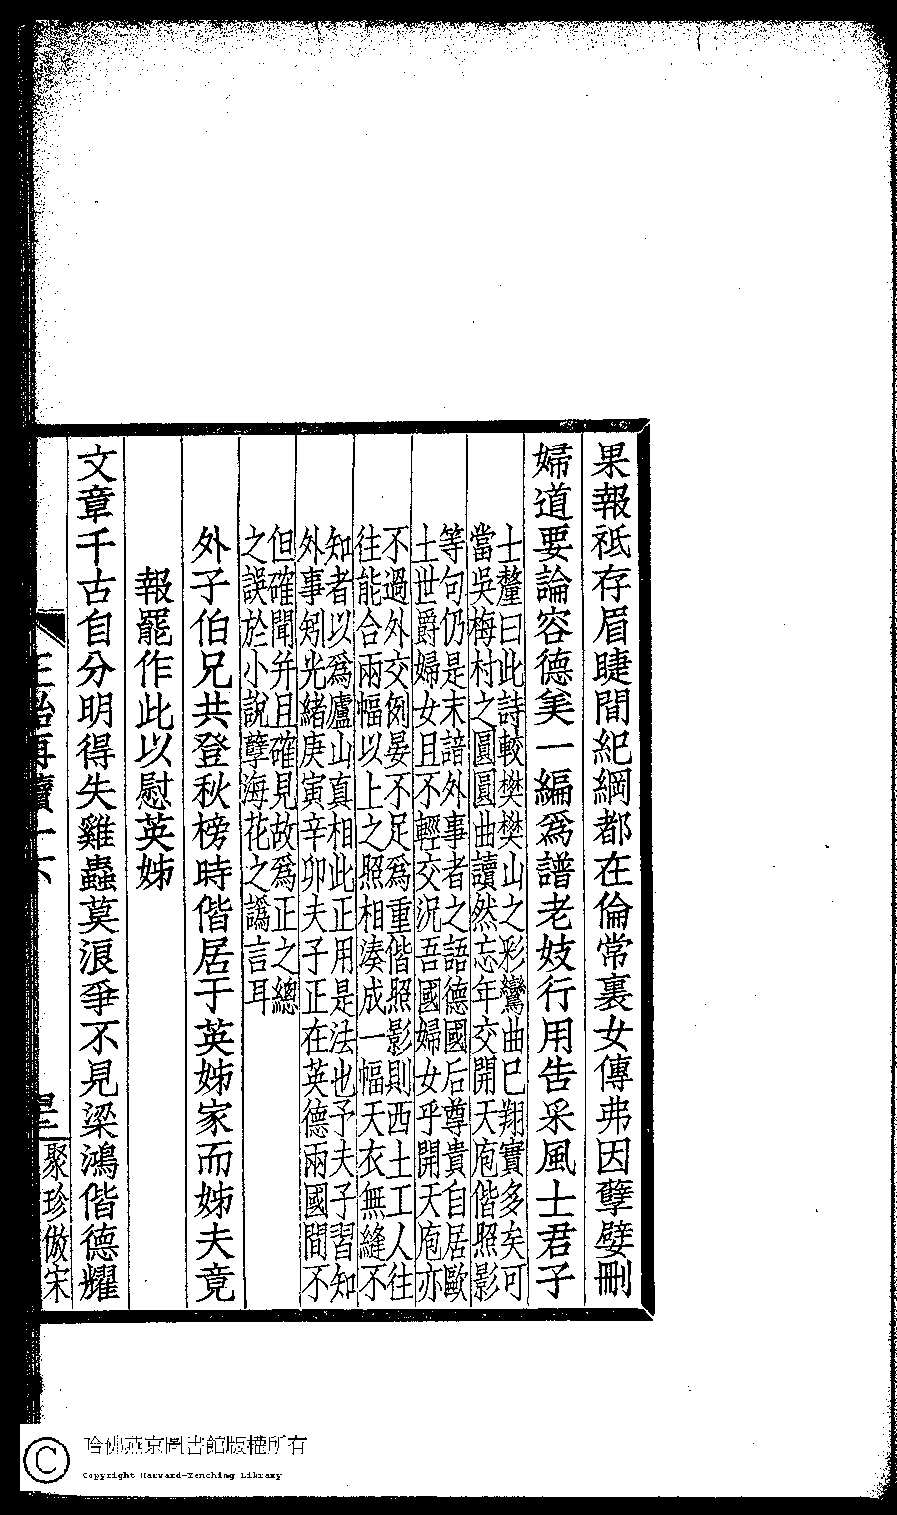 果報祗存眉睫間紀綱都在倫常裏女傳弗因孽嬖刪
婦道要論容德美一編爲譜老妓行用告采風士君子
士釐曰此詩較樊樊山之彩鸞曲巳翔實多矣可
當吳梅村之圓圓曲讀然忘年交開天庖偕照影
等句仍是末諳外事者之語德國后尊貴自居歐
土世爵婦女且不輕交況吾國婦女乎開天庖亦
不過外交例晏不足爲重偕照影則西土工人往
往能合兩幅以上之照相湊成一幅天衣無縫不
知者以爲廬山真相此正用是法也予夫子習知
外事矧光緒庚寅辛卯夫子正在英德兩國間不
但確聞幷且確見故爲正之總
之誤於小說孽海花之譌言耳
外子伯兄共登秋榜時偕居于英姊家而姊夫竟
報罷作此以慰英姊
文章千古自分明得失雞蟲莫浪爭不見梁鴻偕德耀
聚珍倣宋
哈佛燕京圖書館版權所有
Copyright Harvard-Yenching Library